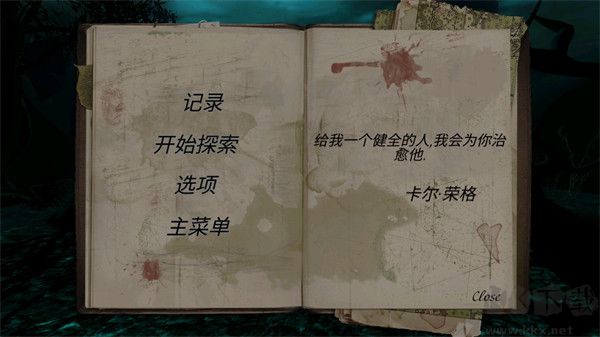 记录
开始探索
选项
主菜单
给我一个健全的人,我会为你治
愈他.
卡尔·荣格
Close
www.kkx.net